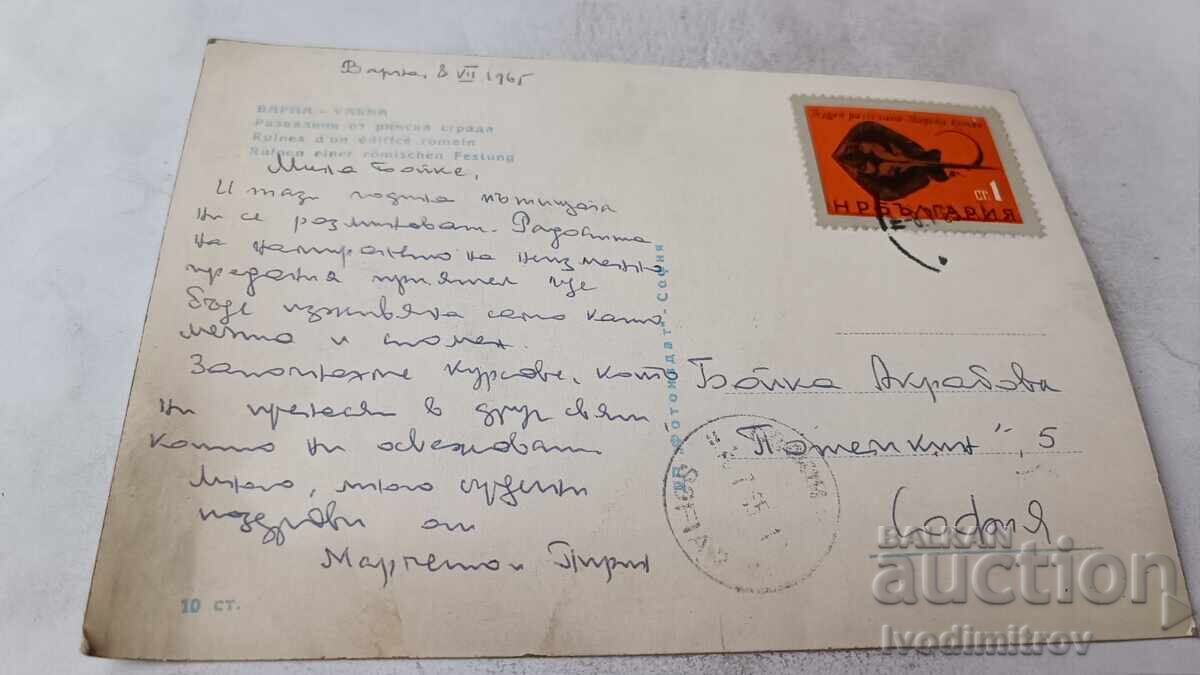 Варна, 8 VII 1965
ВАРНА - VARNA
Развалини от римска сграда
Ruines d'un édifice romein
Ruinen einer römischen Festung
Мила Бойке,
И тази година пътищата
ни се разминават. Радостта
на намирането на неизменно
предания приятел ще
бъде изживяна само като
мечта и спомен.
Започнахме курсове, които
ни пренасят в друг свят
които ни освежават.
Много, много сърдечни
поздрави от
Марчето и Пирин
10 ст.
ДП „Фотоиздат" - София
Морска котка
ст. 1
НР БЪЛГАРИЯ
Бойка Акрабова
"Потемкин", 5
София
BALKAN
auction
Ivodimitrov